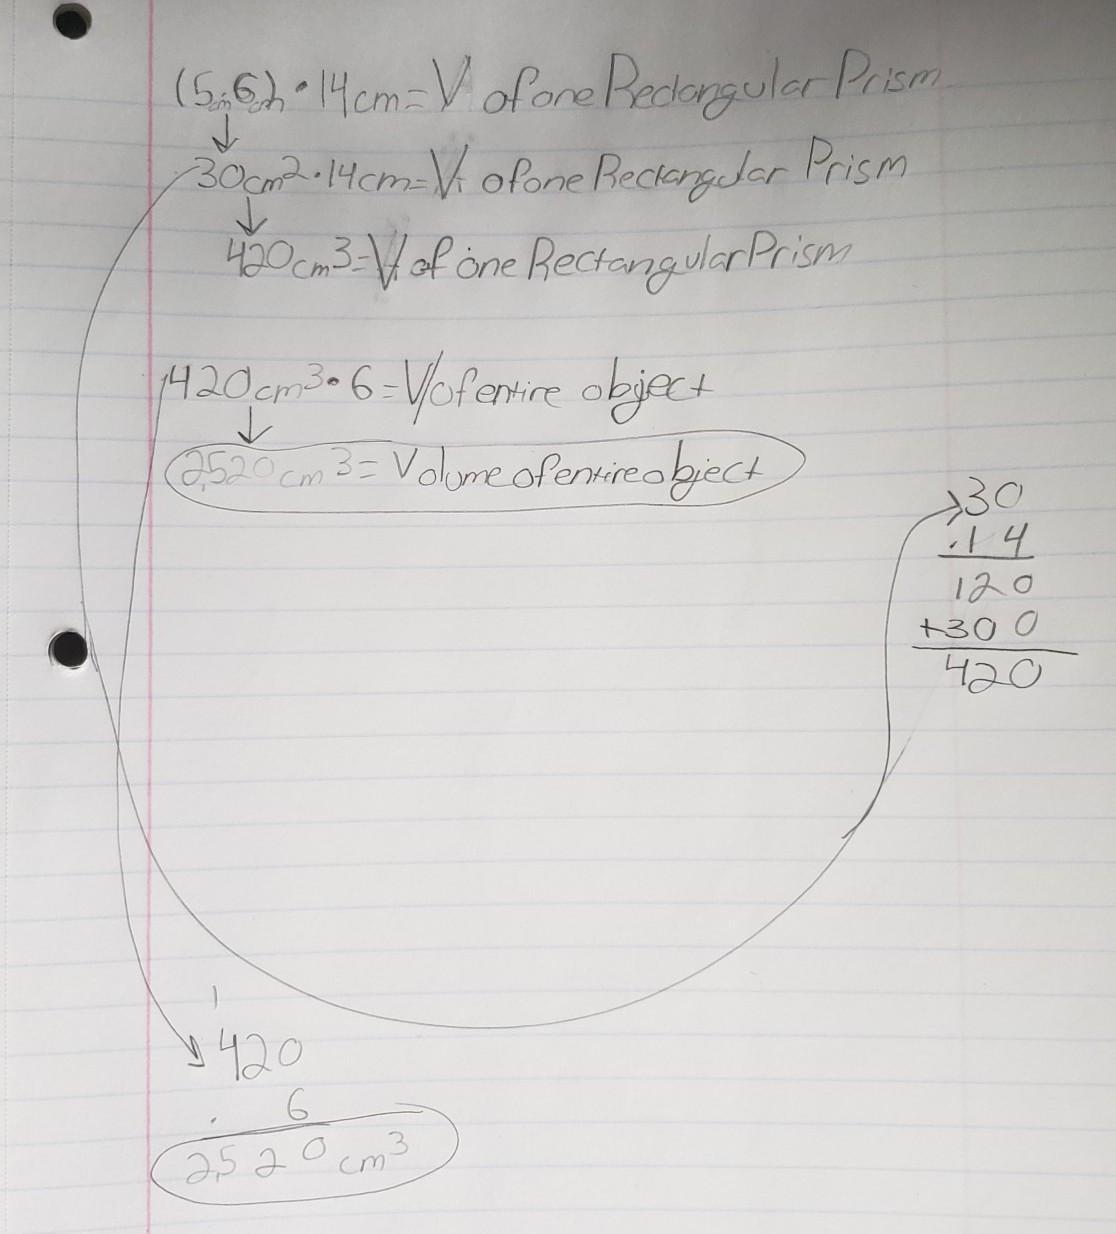 (5cm·6cm)·14cm=V of one Rectangular Prism
30cm2·14cm=V of one Rectangular Prism
420cm3=V of one Rectangular Prism
420cm3·6=V of entire object
2,520cm3=Volume of entire object
30
·14
120
+300
420
1
420
· 6
2,520cm3